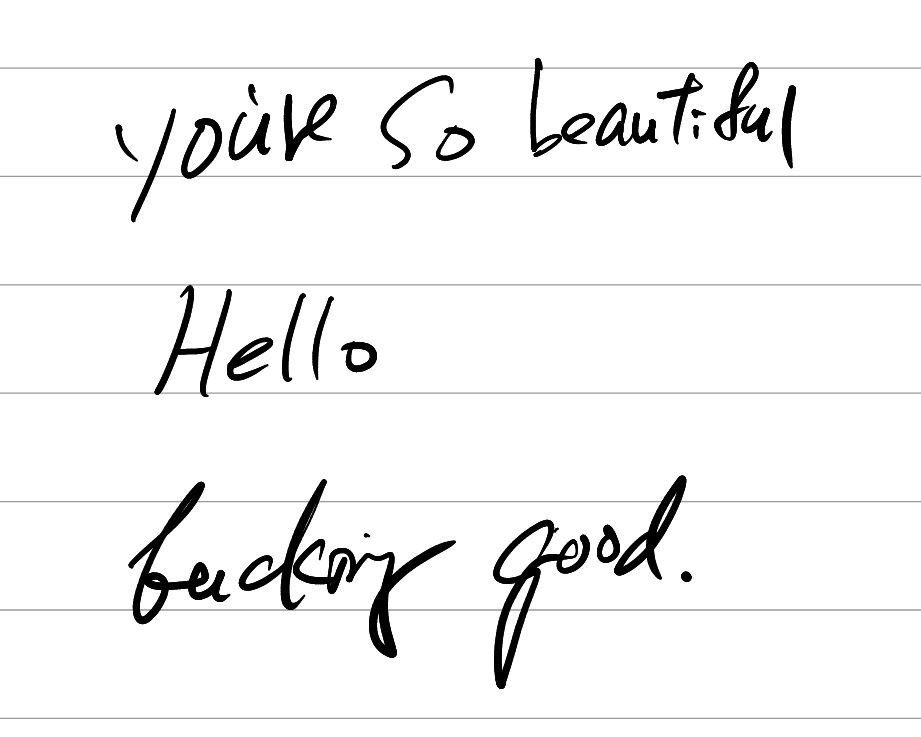 you're so beautiful
Hello
fucking good.